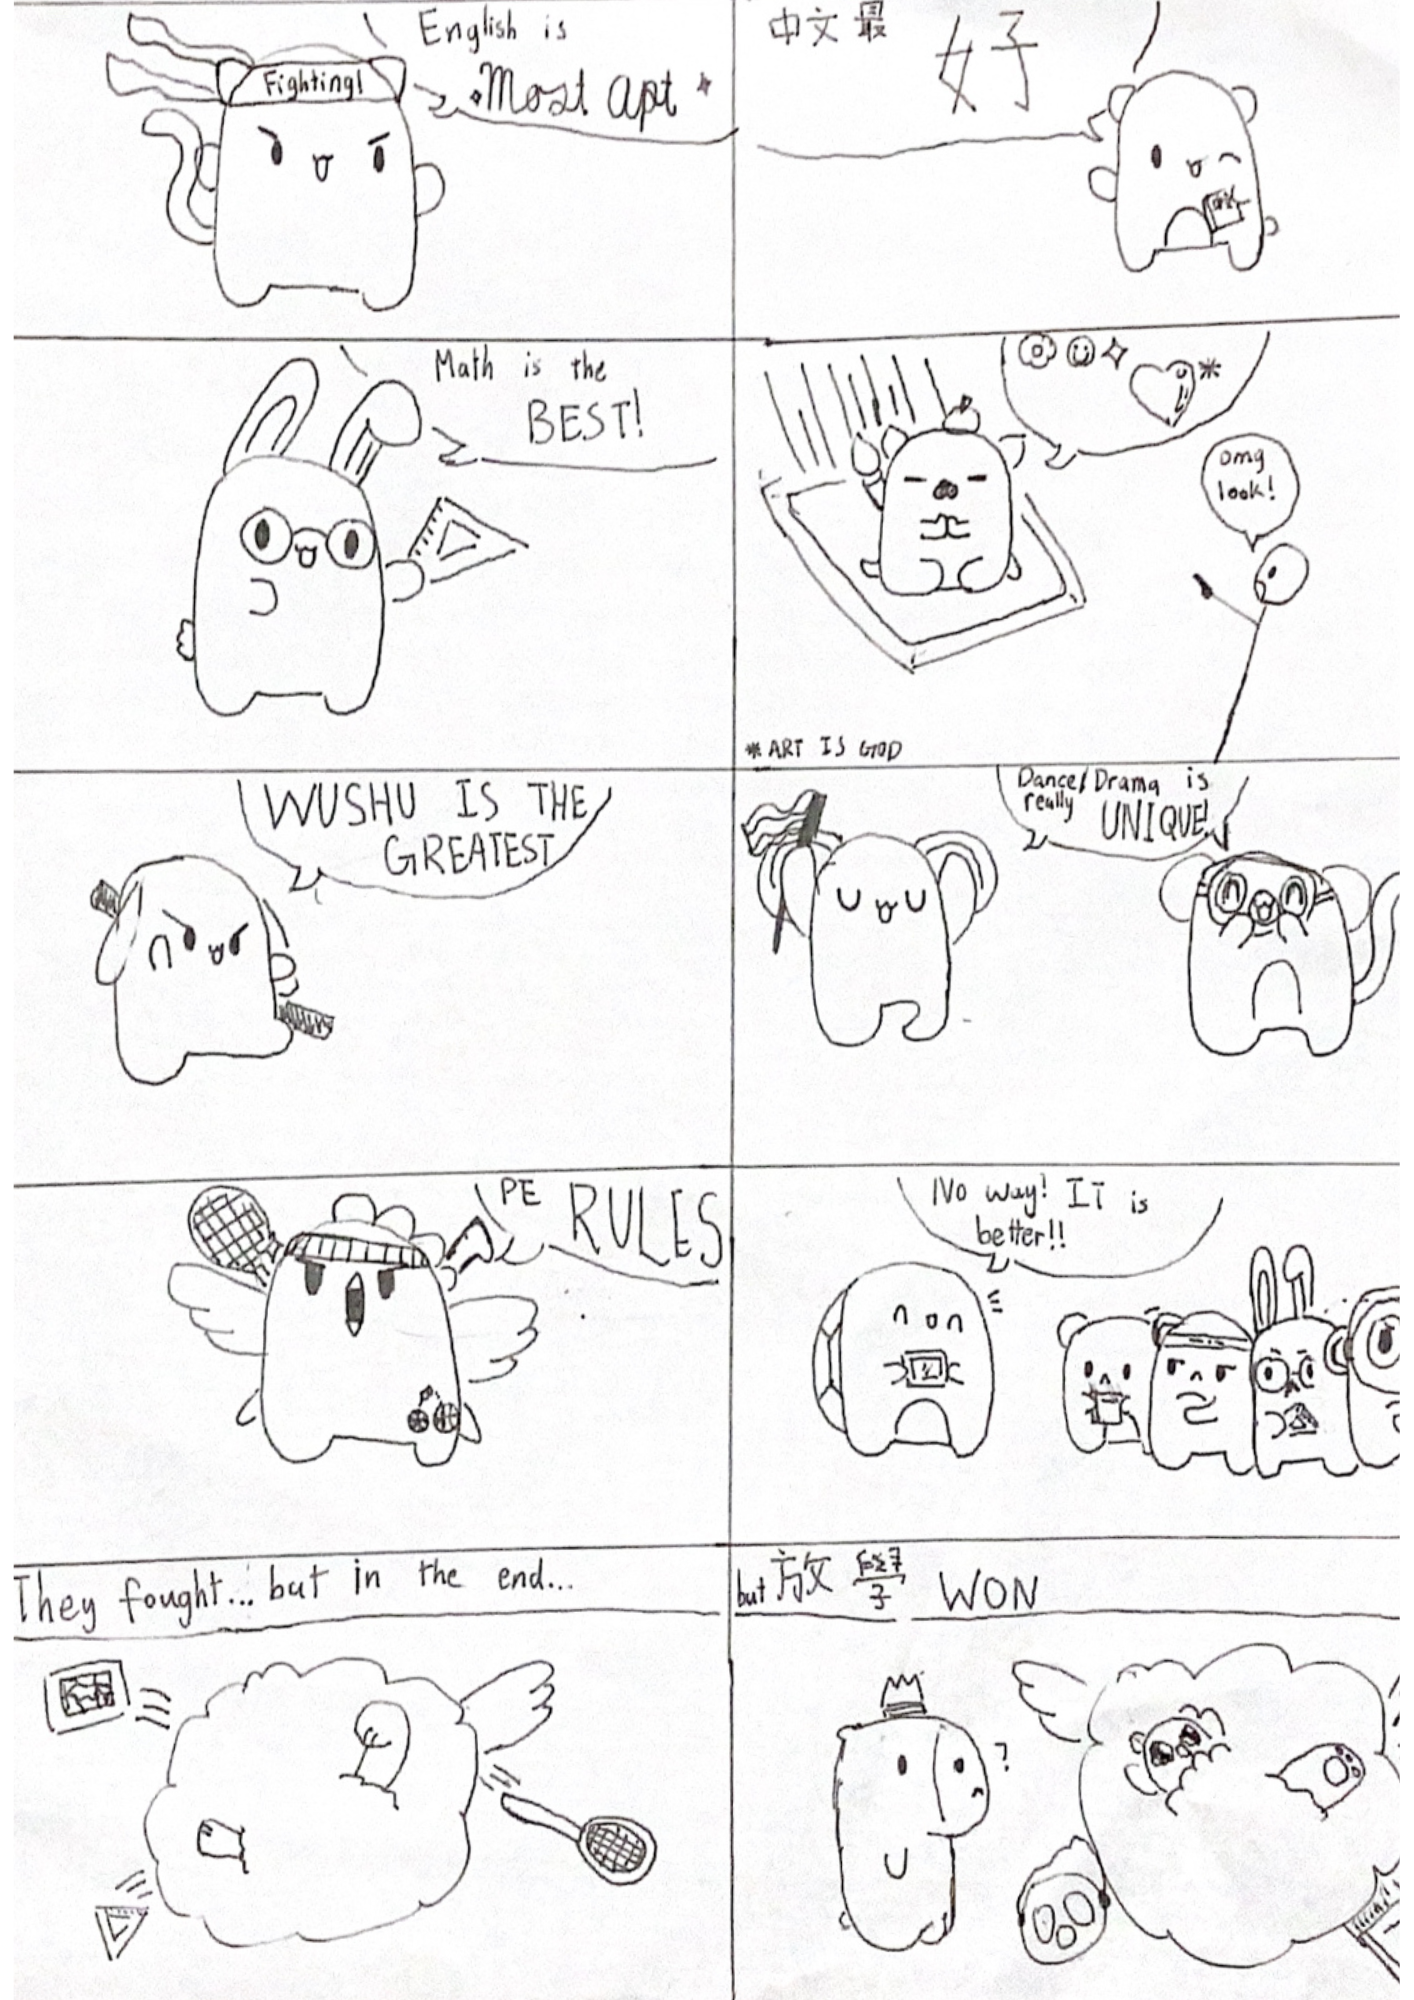 Fighting!
English is
Most apt
中文最
好
Math is the
BEST!
omg
look!
* ART IS GOD
WUSHU IS THE
GREATEST
Dance/Drama is
really UNIQUE!
PE RULES
No way! IT is
better!!
They fought... but in the end...
but 放學 WON
?